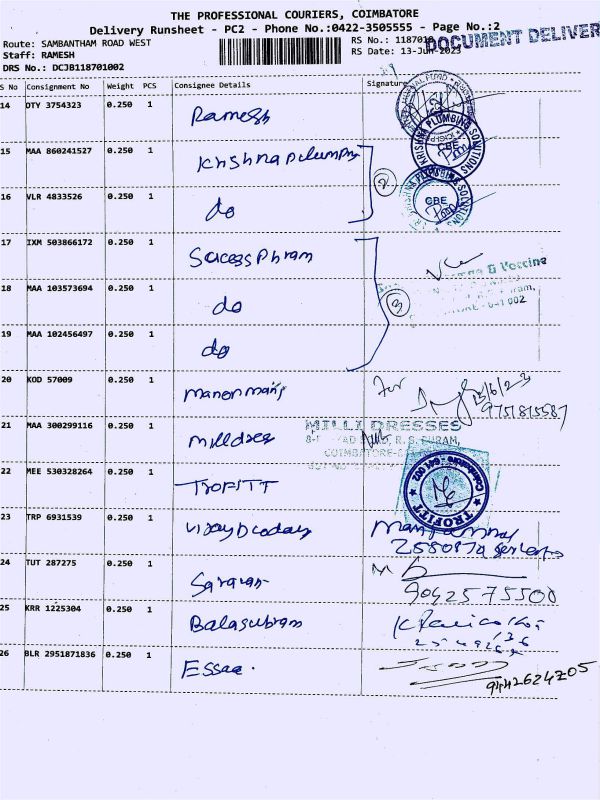 THE PROFESSIONAL COURIERS, COIMBATORE
Delivery Runsheet - PC2 - Phone No.:0422-3505555 - Page No.:2
Route: SAMBANTHAM ROAD WEST
RS No.: 1187010
DOCUMENT DELIVER
Staff: RAMESH
RS Date: 13-Jun-2023
DRS No.: DCJB118701002
S No Consignment No Weight PCS Consignee Details Signature
14 DTY 3754323 0.250 1 Ramesh
15 MAA 860241527 0.250 1 Krishna plumping
KRISHNA PLUMBING SOLUTIONS
CBE
16 VLR 4833526 0.250 1 do
2
CBE
17 IXM 503866172 0.250 1 Sucess Phram
& Vaccine
18 MAA 103573694 0.250 1 do
3
19 MAA 102456497 0.250 1 do
20 KOD 57009 0.250 1 manonmani
For
13/6/23
9751815587
21 MAA 300299116 0.250 1 milldres
MILLI DRESSES
R. S. PURAM,
22 MEE 530328264 0.250 1 TROFITT
Coimbatore - 641 002
TROFITT
23 TRP 6931539 0.250 1
24 TUT 287275 0.250 1 Saravan
9042575500
25 KRR 1225304 0.250 1 Balasubram
26 BLR 2951871836 0.250 1 Essae.
9442624705